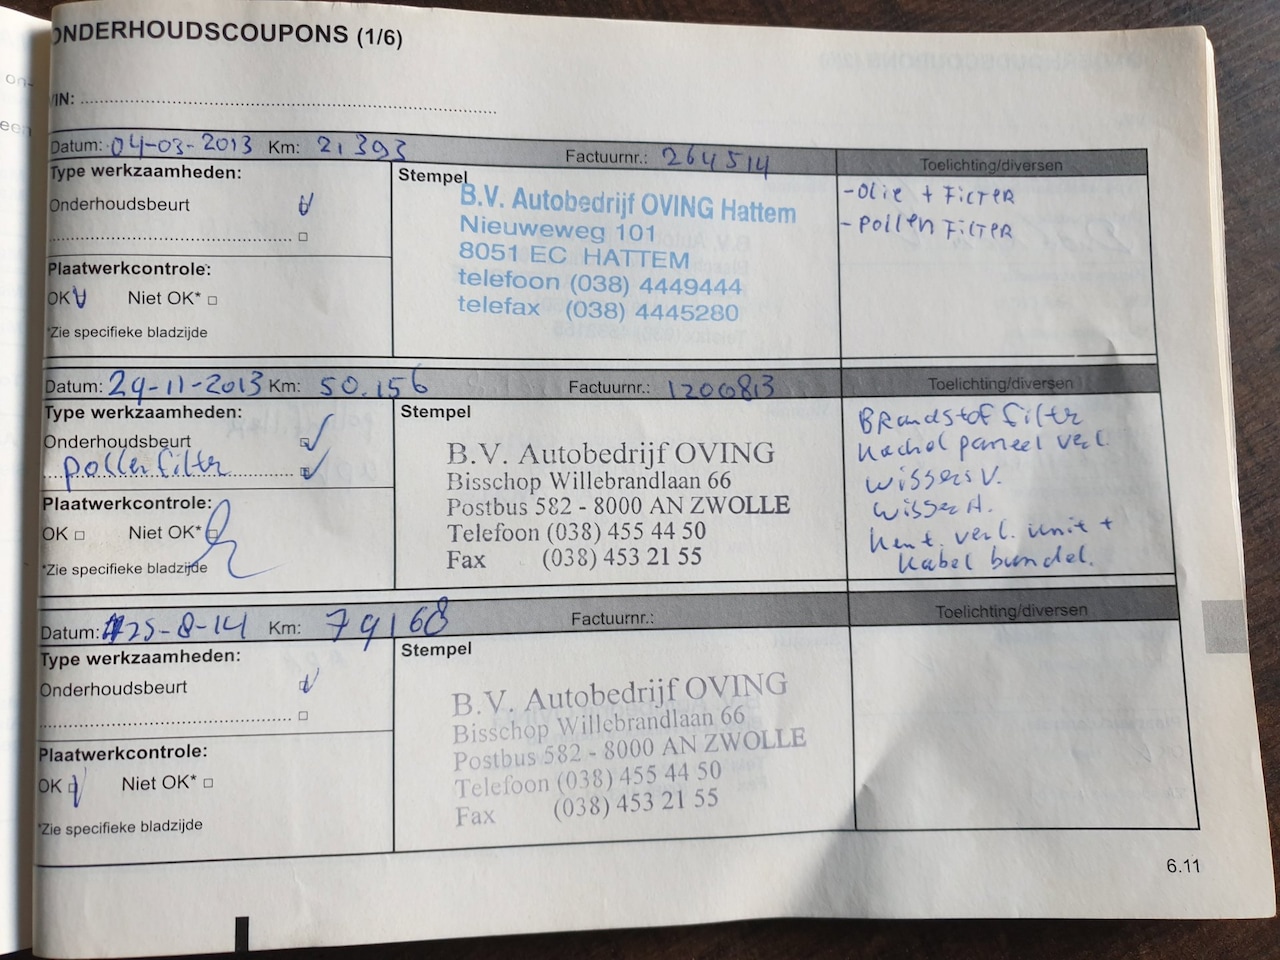 ONDERHOUDSCOUPONS (1/6)
VIN:
Datum: 04-03-2013 Km: 21393 Factuurnr.: 264514 Toelichting/diversen
Type werkzaamheden:
Onderhoudsbeurt
Plaatwerkcontrole:
OK Niet OK*
*Zie specifieke bladzijde
Stempel
B.V. Autobedrijf OVING Hattem
Nieuweweg 101
8051 EC HATTEM
telefoon (038) 4449444
telefax (038) 4445280
- OLIE + FILTER
- POLLEN FILTER
Datum: 29-11-2013 Km: 50.156 Factuurnr.: 1200813 Toelichting/diversen
Type werkzaamheden:
Onderhoudsbeurt
pollenfiltr
Plaatwerkcontrole:
OK Niet OK*
*Zie specifieke bladzijde
Stempel
B.V. Autobedrijf OVING
Bisschop Willebrandlaan 66
Postbus 582 - 8000 AN ZWOLLE
Telefoon (038) 455 44 50
Fax (038) 453 21 55
Brandstof filtr
paneel verl.
wissers V.
wisser A.
Kent. verl. unit +
kabel bundel.
Datum: 25-8-14 Km: 79168 Factuurnr.: Toelichting/diversen
Type werkzaamheden:
Onderhoudsbeurt
Plaatwerkcontrole:
OK Niet OK*
*Zie specifieke bladzijde
Stempel
B.V. Autobedrijf OVING
Bisschop Willebrandlaan 66
Postbus 582 - 8000 AN ZWOLLE
Telefoon (038) 455 44 50
Fax (038) 453 21 55
6.11